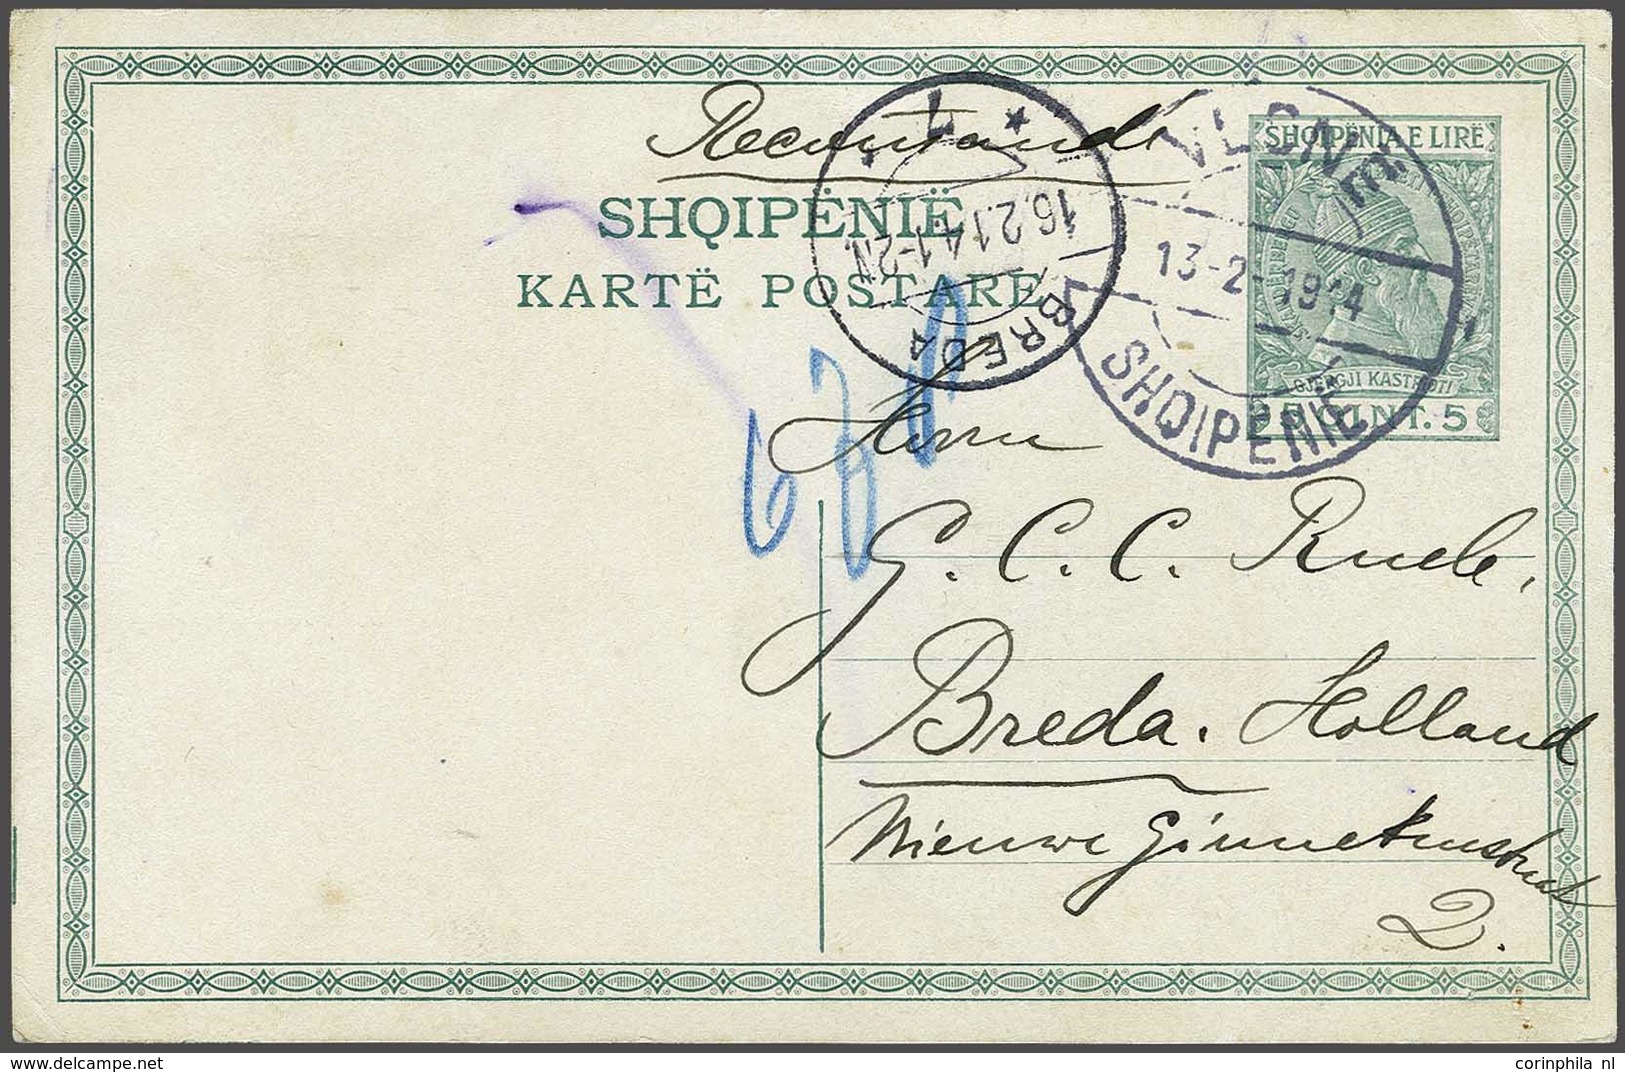 Recomandé
SHQIPËNIË
KARTË POSTARE
BREDA
16.2.14.1-2N.
1
VLONË
13-2-1914
SHQIPENIE
SHQIPËNIA E LIRË
GJERGJI KASTRIOTI
5 QINT. 5
Herrn
G. C. C. Ruele.
Breda. Holland
Nieuwe Ginnekenstraat
2.
www.delcampe.net
corinphila nl